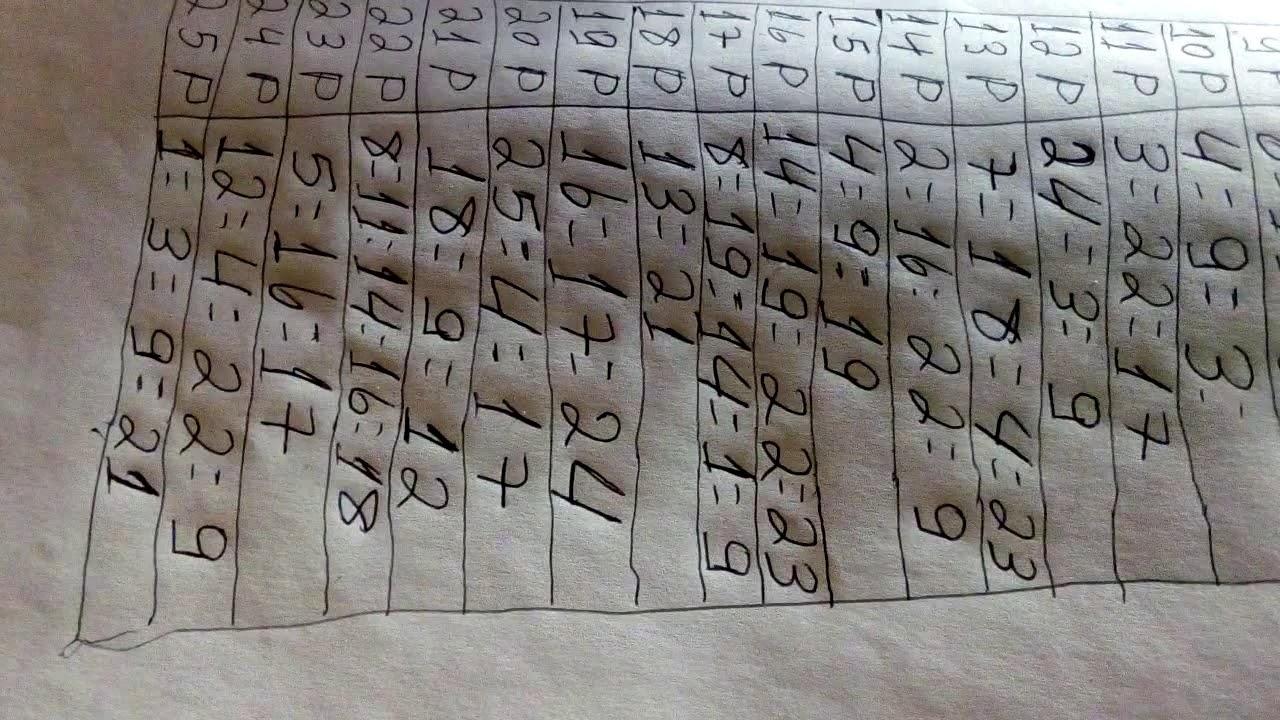 10 р 4 = 9 = 3 =
11 р 3 = 22 = 17
12 р 24 = 3 = 9
13 р 7 = 18 = 4 = 23
14 р 2 = 16 = 22 = 9
15 р 4 = 9 = 19
16 р 14 = 19 = 22 = 23
17 р 8 = 19 = 14 = 1 = 9
18 р 13 = 21
19 р 16 = 17 = 24
20 р 25 = 4 = 17
21 р 18 = 9 = 12
22 р 8 = 11 = 14 = 16 = 18
23 р 5 = 16 = 17
24 р 12 = 4 = 22 = 9
25 р 1 = 3 = 9 = 21